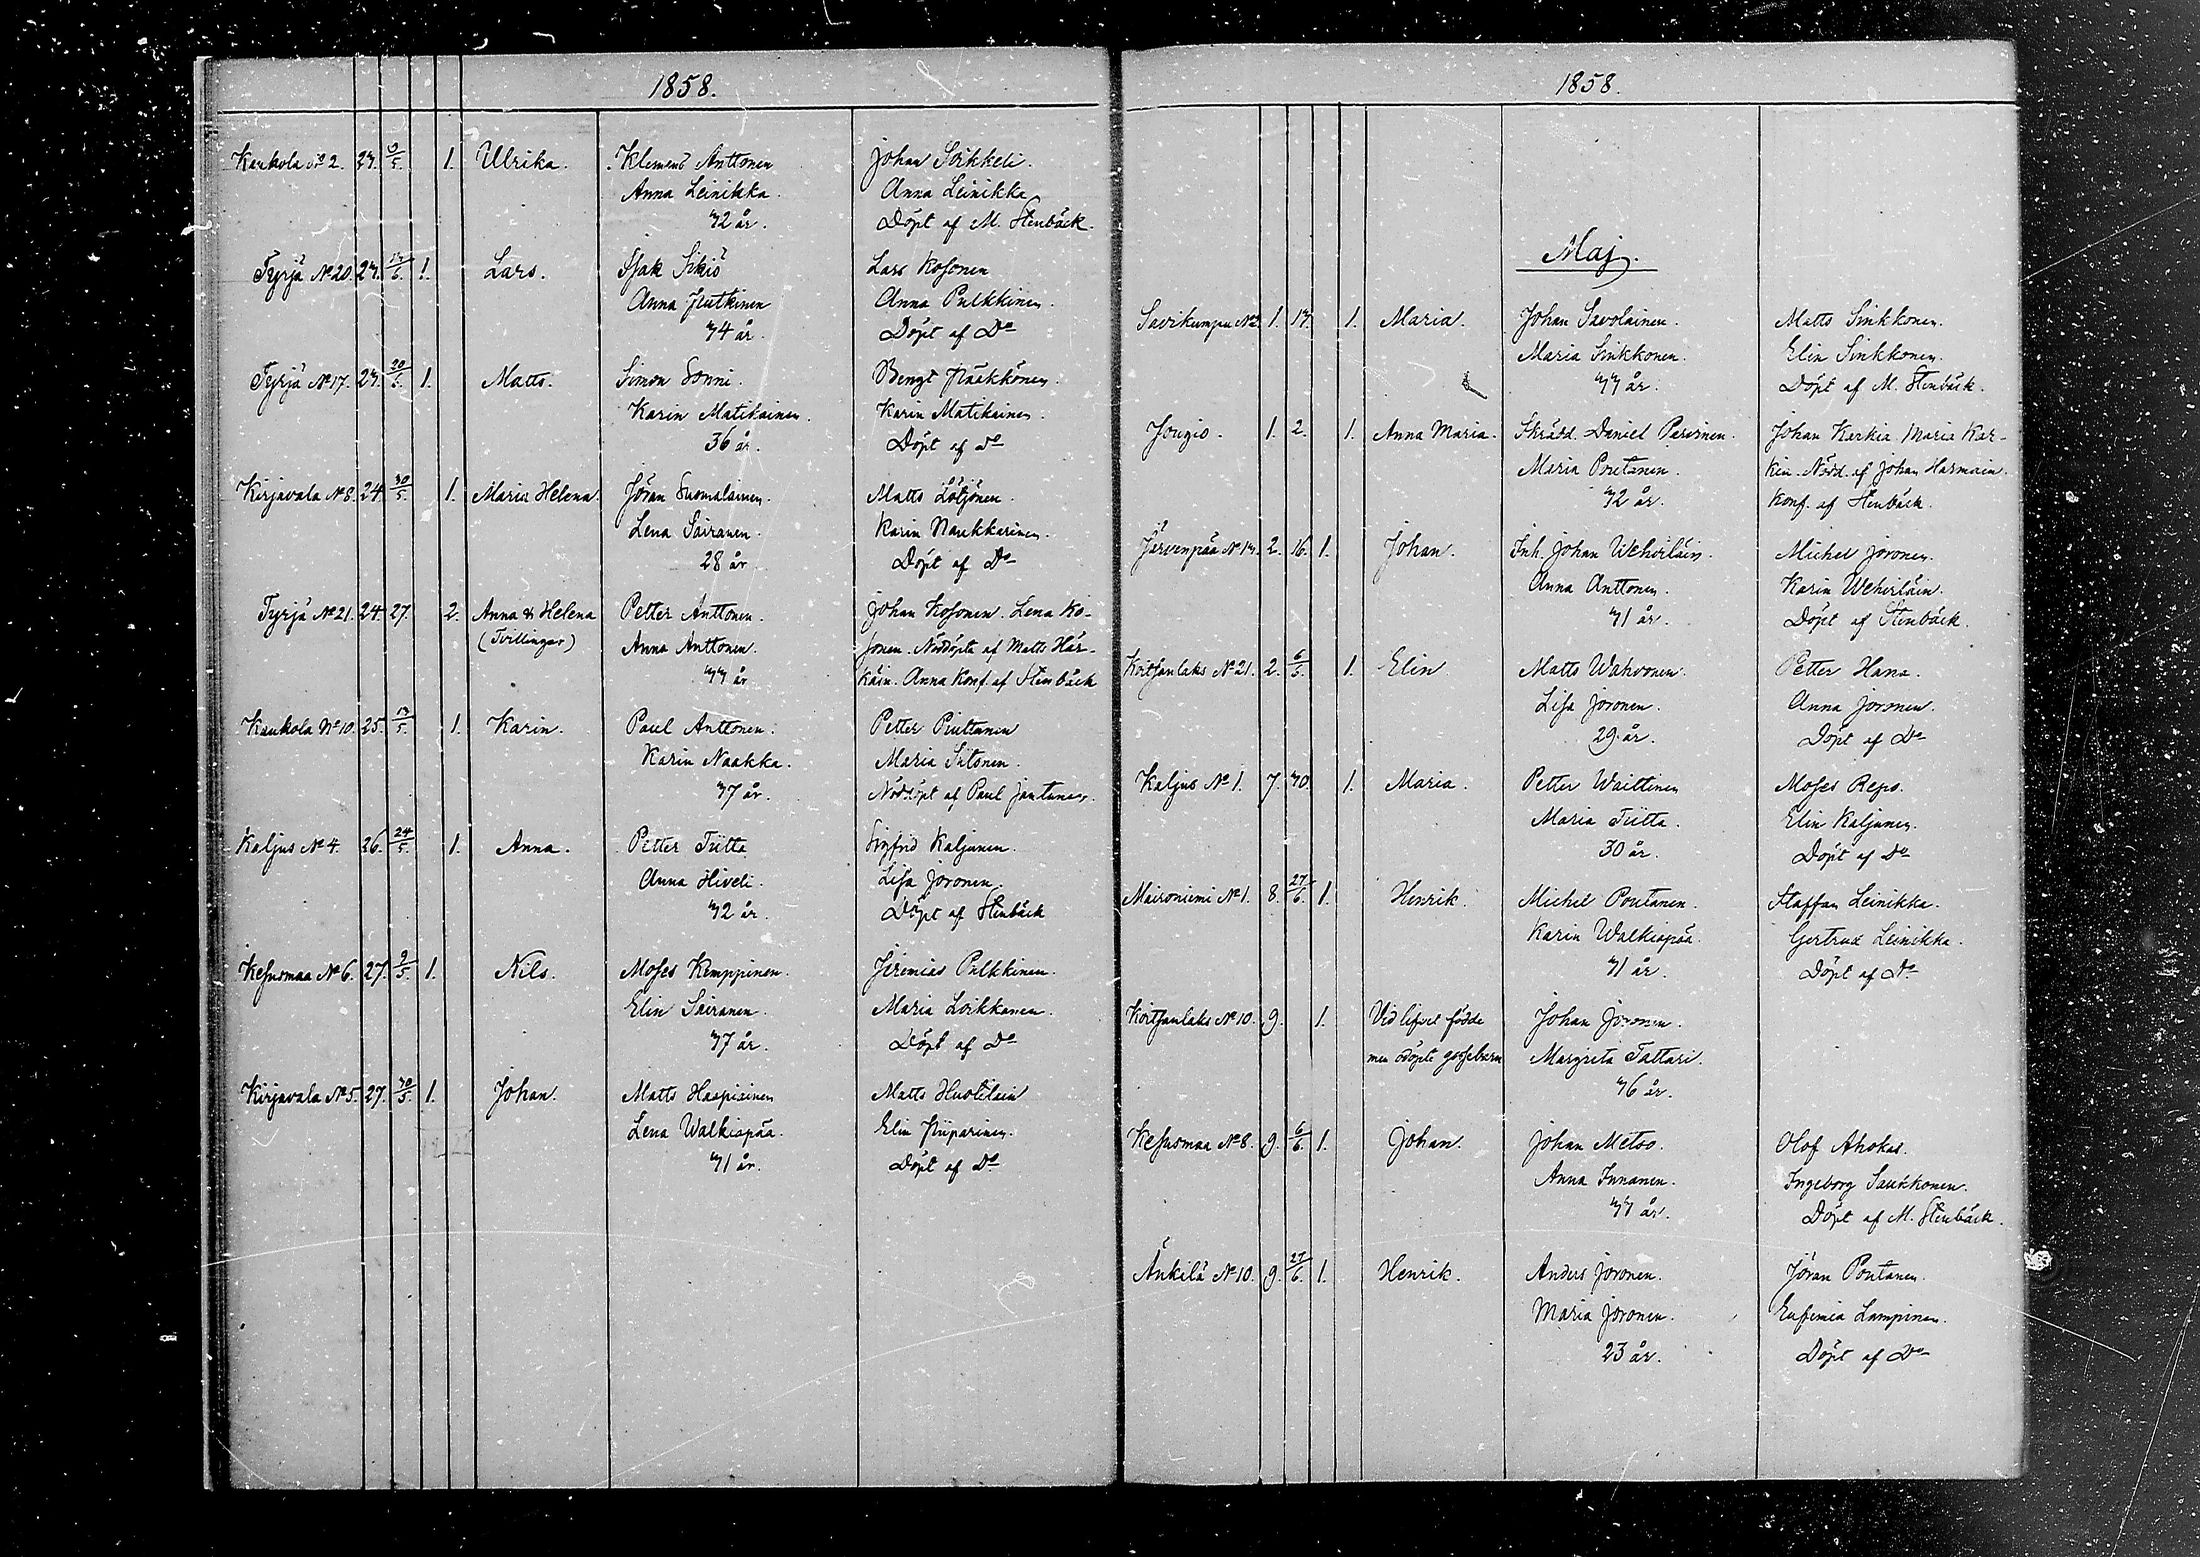 1858.
Kankola No 2. 23. 9/5. 1. Ulrika. Klemens Anttonen Johan Soikkeli.
Anna Leinikka. Anna Leinikka
32 år. Döpt af M. Stenbäck.
Tyrjä No 20. 23. 13/6. 1. Lars. Isak Sikiö Lars Kosonen
Anna Putkinen Anna Pulkkinen.
34 år. Döpt af Do
Tyrjä No 17. 23. 20/6. 1. Matts. Simon Sonni. Bengt Pääkkönen.
Karin Matikainen. Karin Matikainen.
36 år. Döpt af Do
Kirjavala No 8. 24. 30/5. 1. Maria Helena. Jöran Suomalainen. Matts Lötjönen.
Lena Sairanen. Karin Naukkarinen.
28 år Döpt af Do
Tyrjä No 21. 24. 27. 2. Anna & Helena Petter Anttonen. Johan Kosonen. Lena Ko-
(Tvillingar) Anna Anttonen. sonen. Nöddöpte af Matts Här-
33 år käin. Anna Konf. af Stenbäck
Kankola No 10. 25. 13/5. 1. Karin. Paul Anttonen. Petter Piuttunen
Karin Naakka. Maria Siitonen.
37 år. Nöddöpt af Paul Jantunen.
Kaljus No 4. 26. 24/5. 1. Anna. Petter Tiitta Sigfrid Kaljunen.
Anna Hiveli. Lisa Joronen.
32 år. Döpt af Stenbäck
Kesusmaa No 6. 27. 9/5. 1. Nils. Moses Kemppinen. Jeremias Pulkkinen.
Elin Sairanen. Maria Loikkanen.
37 år. Döpt af Do
Kirjavala No 5. 27. 30/5. 1. Johan. Matts Haapiainen Matts Huotilain
Lena Walkiapää. Elin Piiparinen.
31 år. Döpt af Do
1858.
Maj.
Savikumpu No 2. 1. 13. 1. Maria. Johan Savolainen. Matts Sinkkonen.
Maria Sinkkonen. Elin Sinkkonen.
33 år. Döpt af M. Stenbäck.
Jougio. 1. 2. 1. Anna Maria. Skrädd. Daniel Parvinen. Johan Karkia. Maria Kar-
Maria Poutanen. kia. Nödd. af Johan Harmain.
32 år. Konf. af Stenbäck.
Järvenpää No 13. 2. 16. 1. Johan. Inh. Johan Wehviläin. Michel Joronen.
Anna Anttonen. Karin Wehviläin.
31 år. Döpt af Stenbäck.
Koitsanlaks No 21. 2. 6/5. 1. Elin Matts Wahvonen. Petter Hana.
Lisa Joronen. Anna Joronen.
29 år. Döpt af Do
Kaljus No 1. 7. 30. 1. Maria. Petter Waittinen Moses Repo.
Maria Tiitta. Elin Kaljunen.
30 år. Döpt af Do
Maironiemi No 1. 8. 27/6. 1. Henrik Michel Poutanen. Staffan Leinikka.
Karin Walkiapää. Gertrud Leinikka.
31 år. Döpt af Do
Koitsanlaks No 10. 9. 1. Vid lifvet födde Johan Joronen.
men odöpte gossebarn Margreta Tattari.
36 år.
Kesusmaa No 8. 9. 6/6. 1. Johan. Johan Metso. Olof Ahokas.
Anna Innanen. Ingeborg Saukkonen.
33 år. Döpt af M. Stenbäck.
Änkilä No 10. 9. 27/6. 1. Henrik. Anders Joronen. Jöran Poutanen.
Maria Joronen. Eufemia Lampinen.
23 år. Döpt af Do